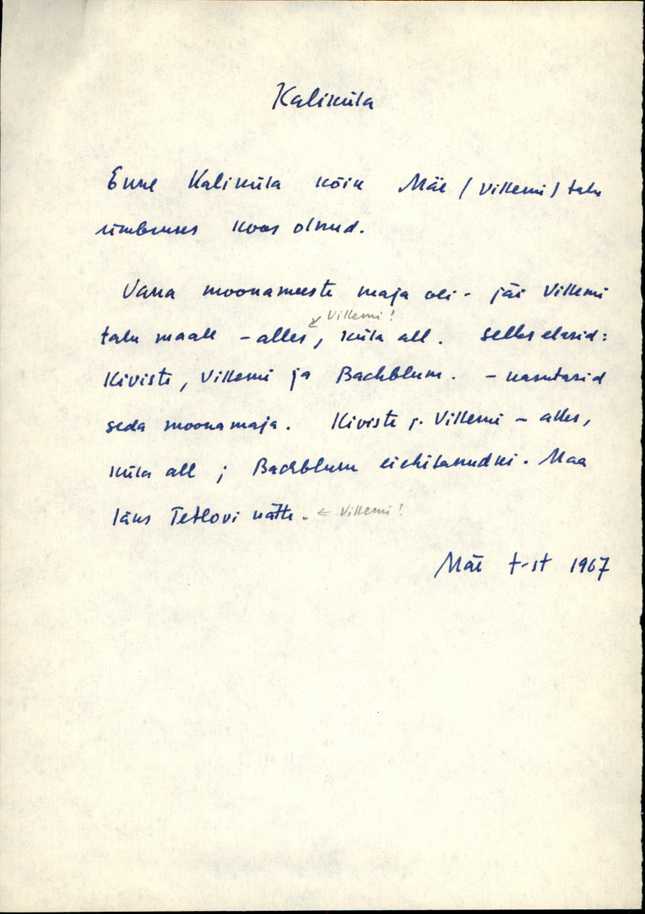 Kaliküla
Enne Kaliküla kõik Mäe (Villemi) talu
ümbruses koos olnud.
Vana moonameeste maja oli - jäi Villemi
Villemi!
talu maale - alles, küla all. Selles elasid:
Kiviste, Villemi ja Bachblum. - kasutasid
seda moonamaja. Kiviste j. Villemi - alles,
küla all ; Bachblum
Maa
läks Tetlovi kätte. ← Villemi!
Mäe t-st 1967